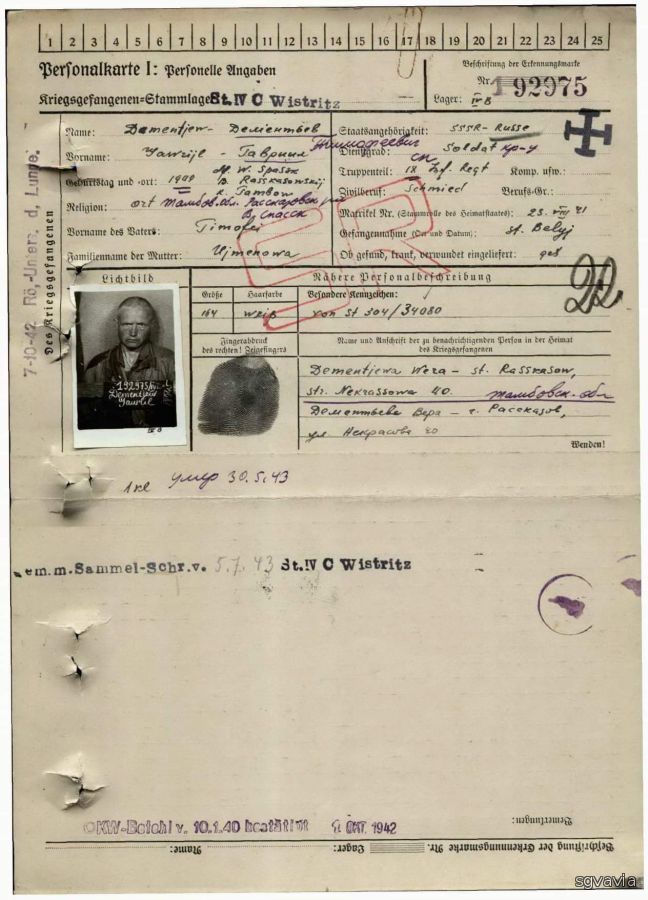 1 2 3 4 5 6 7 8 9 10 11 12 13 14 15 16 17 18 19 20 21 22 23 24 25
Personalkarte I: Personelle Angaben
Beschriftung der Erkennungsmarke
Kriegsgefangenen-Stammlager: St. IV C Wistritz
Nr. 192975
Lager: IV B
Des Kriegsgefangenen
7-10-42 Rö,-Unters. d, Lunge:
Name: Dementjew - Дементьев
Vorname: Gawrijl - Гавриил Тимофеевич
Geburtstag und -ort: 1909 M. W. Spassk
R. Rasskasowskij
K. Tambow
Religion: ort Тамбов. обл. Рассказовск
В. Спасск
Vorname des Vaters: Timofei
Familienname der Mutter: Ujmenowa
Staatsangehörigkeit: SSSR - Russe
Dienstgrad: Soldat кр-ц
Truppenteil: 18 Inf. Regt Komp. usw.:
Zivilberuf: Schmied Berufs-Gr.:
Matrikel Nr. (Stammrolle des Heimatstaates): 23. VII 41
Gefangennahme (Ort und Datum): st. Belyj
Ob gesund, krank, verwundet eingeliefert: ges
22
Lichtbild
192975
Dementjew
Gawriel
IV B
Nähere Personalbeschreibung
Größe Haarfarbe Besondere Kennzeichen:
164 weiß von St 304/34080
Fingerabdruck
des rechten! Zeigefingers
Name und Anschrift der zu benachrichtigenden Person in der Heimat
des Kriegsgefangenen
Dementjewa Wera - st. Rasskasow,
str. Nekrassowa 40. Тамбовск. обл
Дементьева Вера - г. Рассказов,
ул Некрасова 40
Wenden!
умер 30.5.43
m.m. Sammel-Schr.v. 5.7.43 St. IV C Wistritz
Bemerkungen:
OKW-Befehl v. 10.1.40 bestätigt
OKT. 1942
Beschriftung der Erkennungsmarke Nr.
Lager:
Name:
sgvavia